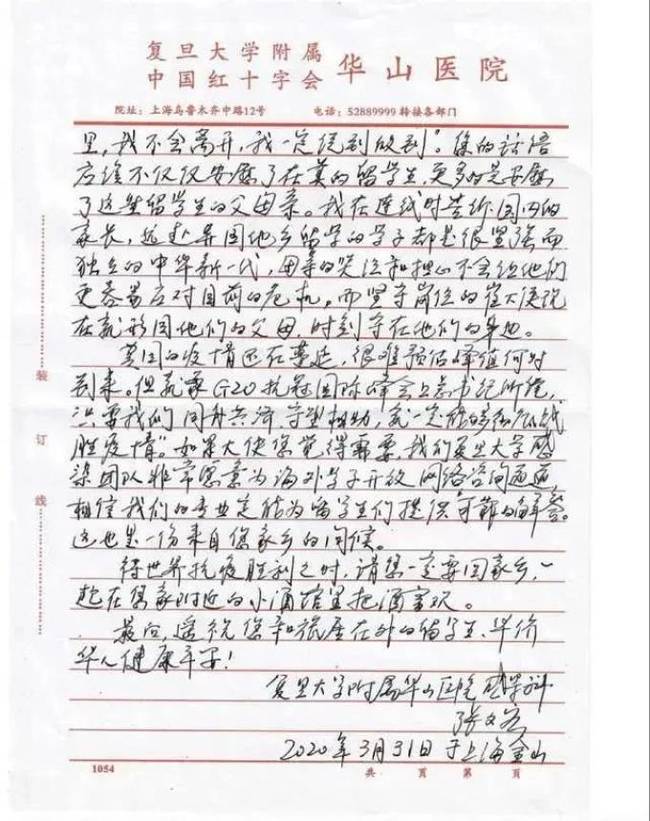 复旦大学附属
中国红十字会 华山医院
院址：上海乌鲁木齐中路12号 电话：52889999 转接各部门
里，我不会离开，我一定说到做到”。您的话语
应该不仅仅安慰了在英的留学生，更多的是安慰
了这些留学生的父母亲。我在连线时告诉国内的
家长，远赴异国他乡留学的学子都是很坚强而
独立的中华新一代，母亲的哭泣和担心不会给他们
更容易应对目前的危机。而坚守岗位的崔大使现
在就形同他们的父母，时刻守在他们的身边。
英国的疫情还在蔓延，很难预估峰值何时
到来。但就像G20抗疫国际峰会上总书记所说，
只要我们同舟共济、守望相助，就一定能够彻底战
胜疫情”。如果大使您觉得需要，我们复旦大学感
染团队非常愿意为海外学子开放网络咨询通道，
相信我们的专业定能为留学生们提供可靠的解答。
这也是一份来自您家乡的问候。
待世界抗疫胜利之时，请您一定要回家乡，一
起在您家附近的小酒馆里把酒言欢。
最后，遥祝您和旅居在外的留学生、华侨
华人健康平安！
复旦大学附属华山医院感染科
张文宏
2020年3月31日于上海金山
装
订
线
1054 共 页 第 页